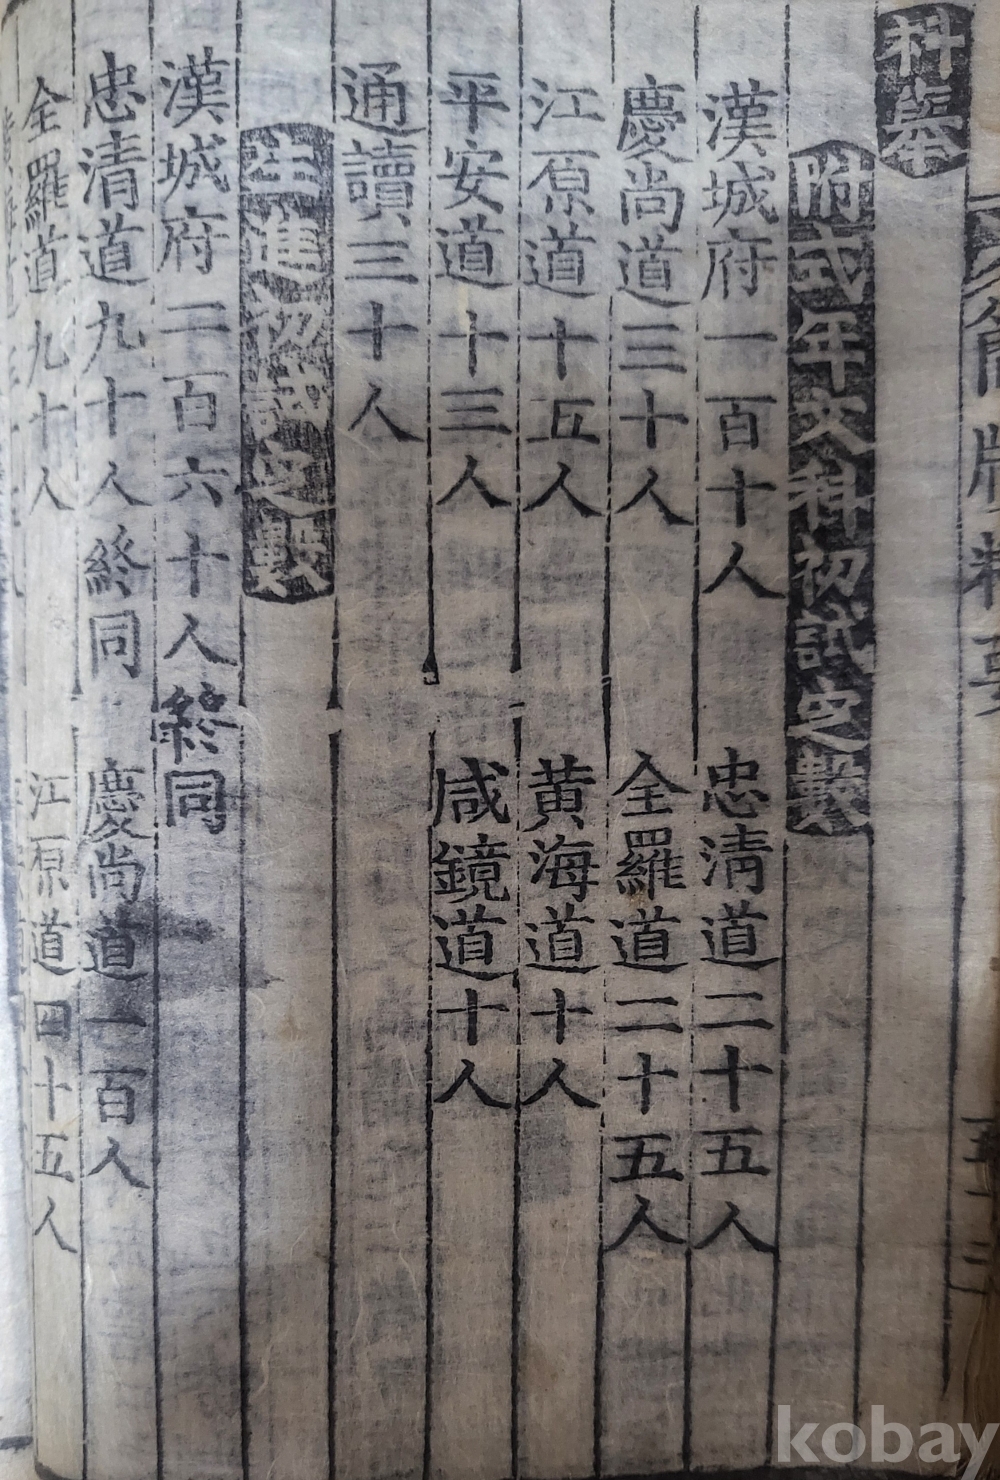 簡牘精要
科擧
附式年文科初試之數
漢城府一百十人 忠淸道二十五人
慶尙道三十人 全羅道二十五人
江原道十五人 黃海道十人
平安道十三人 咸鏡道十人
通讀三十人
生進初試之數
漢城府二百六十人終同
忠淸道九十人終同 慶尙道一百人
全羅道九十人 江原道四十五人
kobay